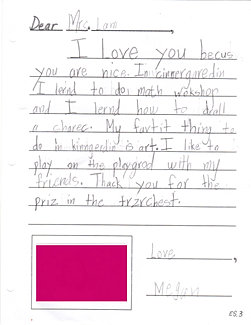 Dear Mrs. Lam,
I Love you becus
you are nice. In cinnergredin
I lernd to do math wokshop
and I lernd how to drall
a charec. My favtit thing to
do in kinngerdin is art. I like to
play on the playgrod with my
friends. Thack you for the
priz in the trzrchest.
Love,
Megan
ES.3